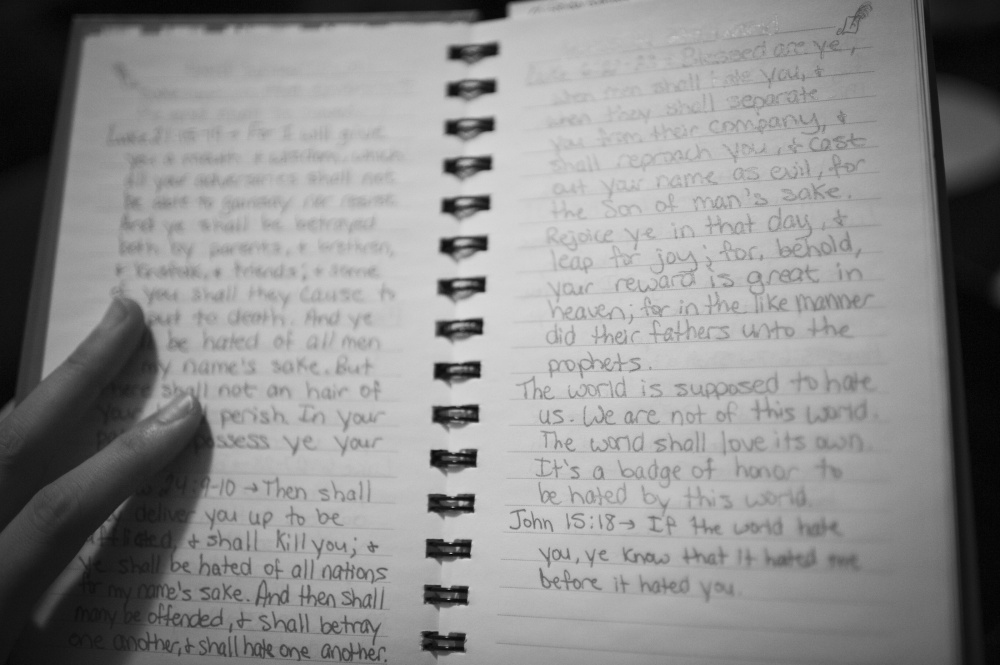 Luke 21:15-19 → For I will give
you a mouth & wisdom, which
all your adversaries shall not
be able to gainsay nor resist.
And ye shall be betrayed
both by parents, & brethren,
& kinsfolk, & friends; & some
of you shall they cause to
put to death. And ye
be hated of all men
my name's sake. But
there shall not an hair of
your perish. In your
possess ye your
24:9-10 → Then shall
deliver you up to be
afflicted, & shall kill you; &
ye shall be hated of all nations
for my name's sake. And then shall
many be offended, & shall betray
one another, & shall hate one another.
Luke 6:22-23 → Blessed are ye,
when men shall hate you, &
when they shall separate
you from their company, &
shall reproach you, & cast
out your name as evil, for
the Son of man's sake.
Rejoice ye in that day, &
leap for joy; for, behold,
your reward is great in
heaven; for in the like manner
did their fathers unto the
prophets.
The world is supposed to hate
us. We are not of this world.
The world shall love its own.
It's a badge of honor to
be hated by this world.
John 15:18 → If the world hate
you, ye know that it hated me
before it hated you.